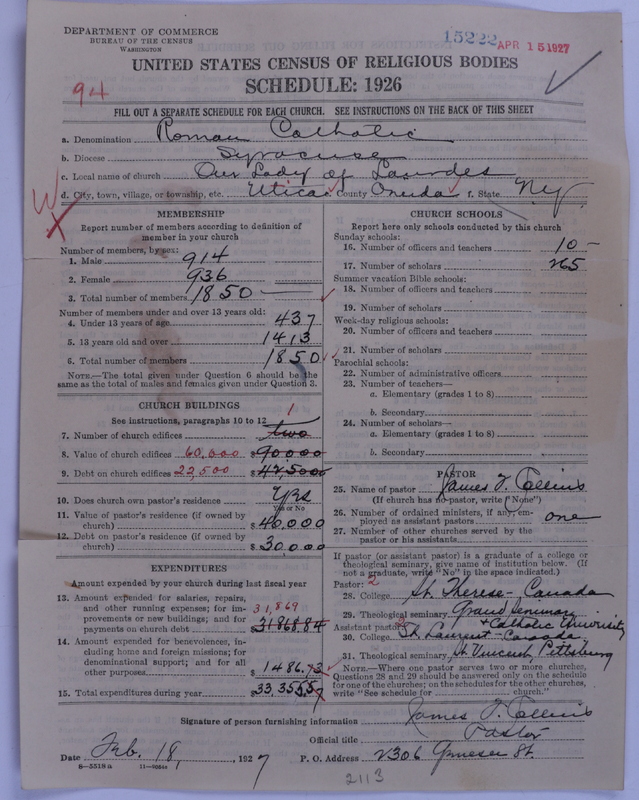 DEPARTMENT OF COMMERCE
BUREAU OF THE CENSUS
WASHINGTON
15222
APR 15 1927
UNITED STATES CENSUS OF RELIGIOUS BODIES
SCHEDULE: 1926
94
FILL OUT A SEPARATE SCHEDULE FOR EACH CHURCH. SEE INSTRUCTIONS ON THE BACK OF THIS SHEET
a. Denomination Roman Catholic
b. Diocese Syracuse
c. Local name of church Our Lady of Lourdes
d. City, town, village, or township, etc. Utica e. County Oneida f. State N.Y.
MEMBERSHIP
Report number of members according to definition of
member in your church
Number of members, by sex:
1. Male 914
2. Female 936
3. Total number of members 1850
Number of members under and over 13 years old:
4. Under 13 years of age 437
5. 13 years old and over 1413
6. Total number of members 1850
NOTE.—The total given under Question 6 should be the
same as the total of males and females given under Question 3.
CHURCH BUILDINGS
See instructions, paragraphs 10 to 12
1
7. Number of church edifices two
8. Value of church edifices 60,000 $90,000
9. Debt on church edifices 22,500 $42,500
10. Does church own pastor's residence Yes
Yes or No
11. Value of pastor's residence (if owned by
church) $40,000
12. Debt on pastor's residence (if owned by
church) $30,000
EXPENDITURES
Amount expended by your church during last fiscal year
13. Amount expended for salaries, repairs,
and other running expenses; for im-
provements or new buildings; and for
payments on church debt 31,869 $31868.84
14. Amount expended for benevolences, in-
cluding home and foreign missions; for
denominational support; and for all
other purposes $1486.73
15. Total expenditures during year $33,355.57
CHURCH SCHOOLS
Report here only schools conducted by this church
Sunday schools:
16. Number of officers and teachers 10
17. Number of scholars 265
Summer vacation Bible schools:
18. Number of officers and teachers
19. Number of scholars
Week-day religious schools:
20. Number of officers and teachers
21. Number of scholars
Parochial schools:
22. Number of administrative officers
23. Number of teachers—
a. Elementary (grades 1 to 8)
b. Secondary
24. Number of scholars—
a. Elementary (grades 1 to 8)
b. Secondary
PASTOR
25. Name of pastor James T. Collins
(If church has no pastor, write "None")
26. Number of ordained ministers, if any, em-
ployed as assistant pastors one
27. Number of other churches served by the
pastor or his assistants
If pastor (or assistant pastor) is a graduate of a college or
theological seminary, give name of institution below. (If
not a graduate, write "No" in the space indicated.)
Pastor: 2
28. College St. Therese - Canada
29. Theological seminary Grand Seminary
+ Catholic University
Assistant pastor:
30. College St. Laurent - Canada
31. Theological seminary St. Vincent Pittsburg
NOTE.—Where one pastor serves two or more churches,
Questions 28 and 29 should be answered only on the schedule
for one of the churches; on the schedules for the other churches,
write "See schedule for church."
Signature of person furnishing information James T. Collins
Official title Pastor
Date Feb. 18, 1927 P. O. Address 2306 Genesee St.
8-5518a
2113